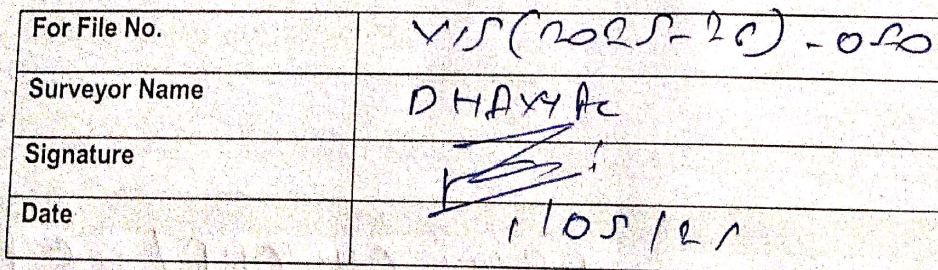 For File No. VIS(2025-26)-050
Surveyor Name DHAVAL
Signature
Date 1/05/25